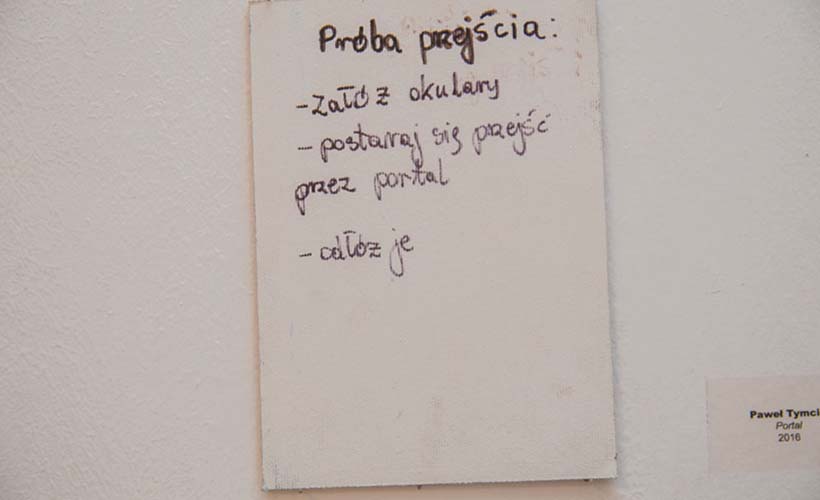 Próba przejścia:
- załóż okulary
- postaraj się przejść
przez portal
- odłóż je
Paweł Tymci
Portal
2016